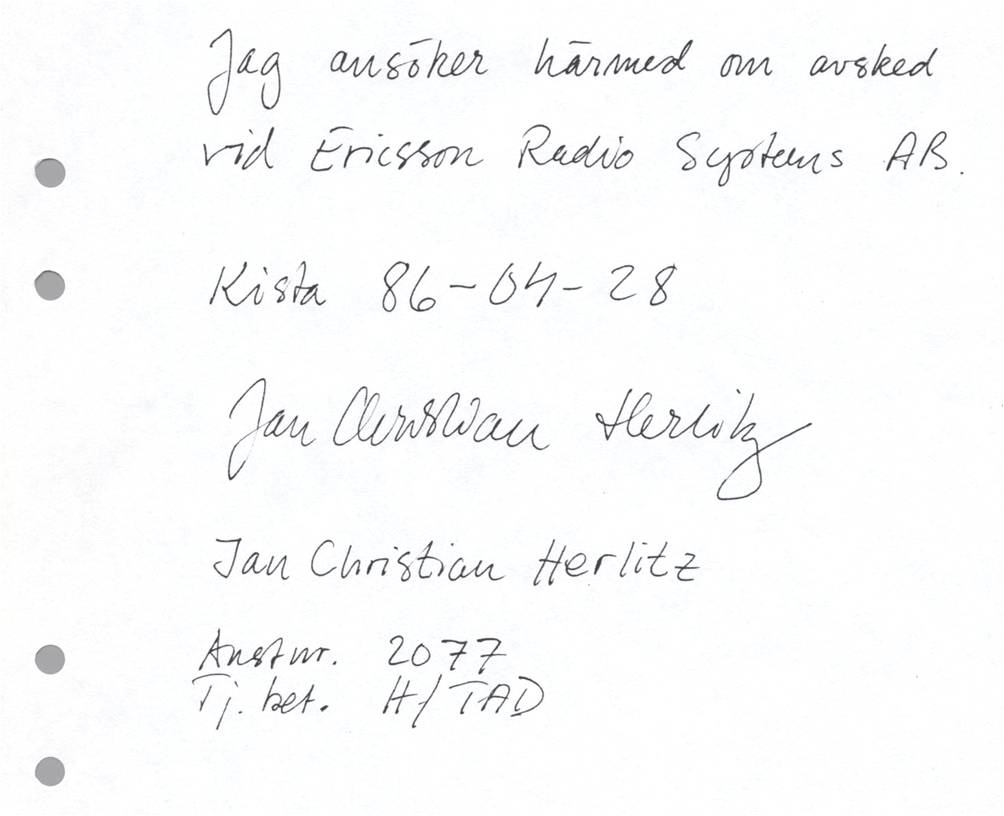 Jag ansöker härmed om avsked
vid Ericsson Radio Systems AB.
Kista 86-04-28
Jan Christian Herlitz
Jan Christian Herlitz
Anst nr. 2077
Tj. bet. H/TAD